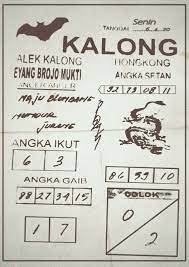 Senin
TANGGAL 6-4-20
KALONG
ALEK KALONG
HONGKONG
EYANG BROJO MUKTI
ANGKA SETAN
32 73 08 11
MAJU BLUMBANG
MUNDUR
JURANG
ANGKA IKUT
6 3
ANGKA GAIB
88 27 34 15
86 99 10
COLOK
1 7
0
2